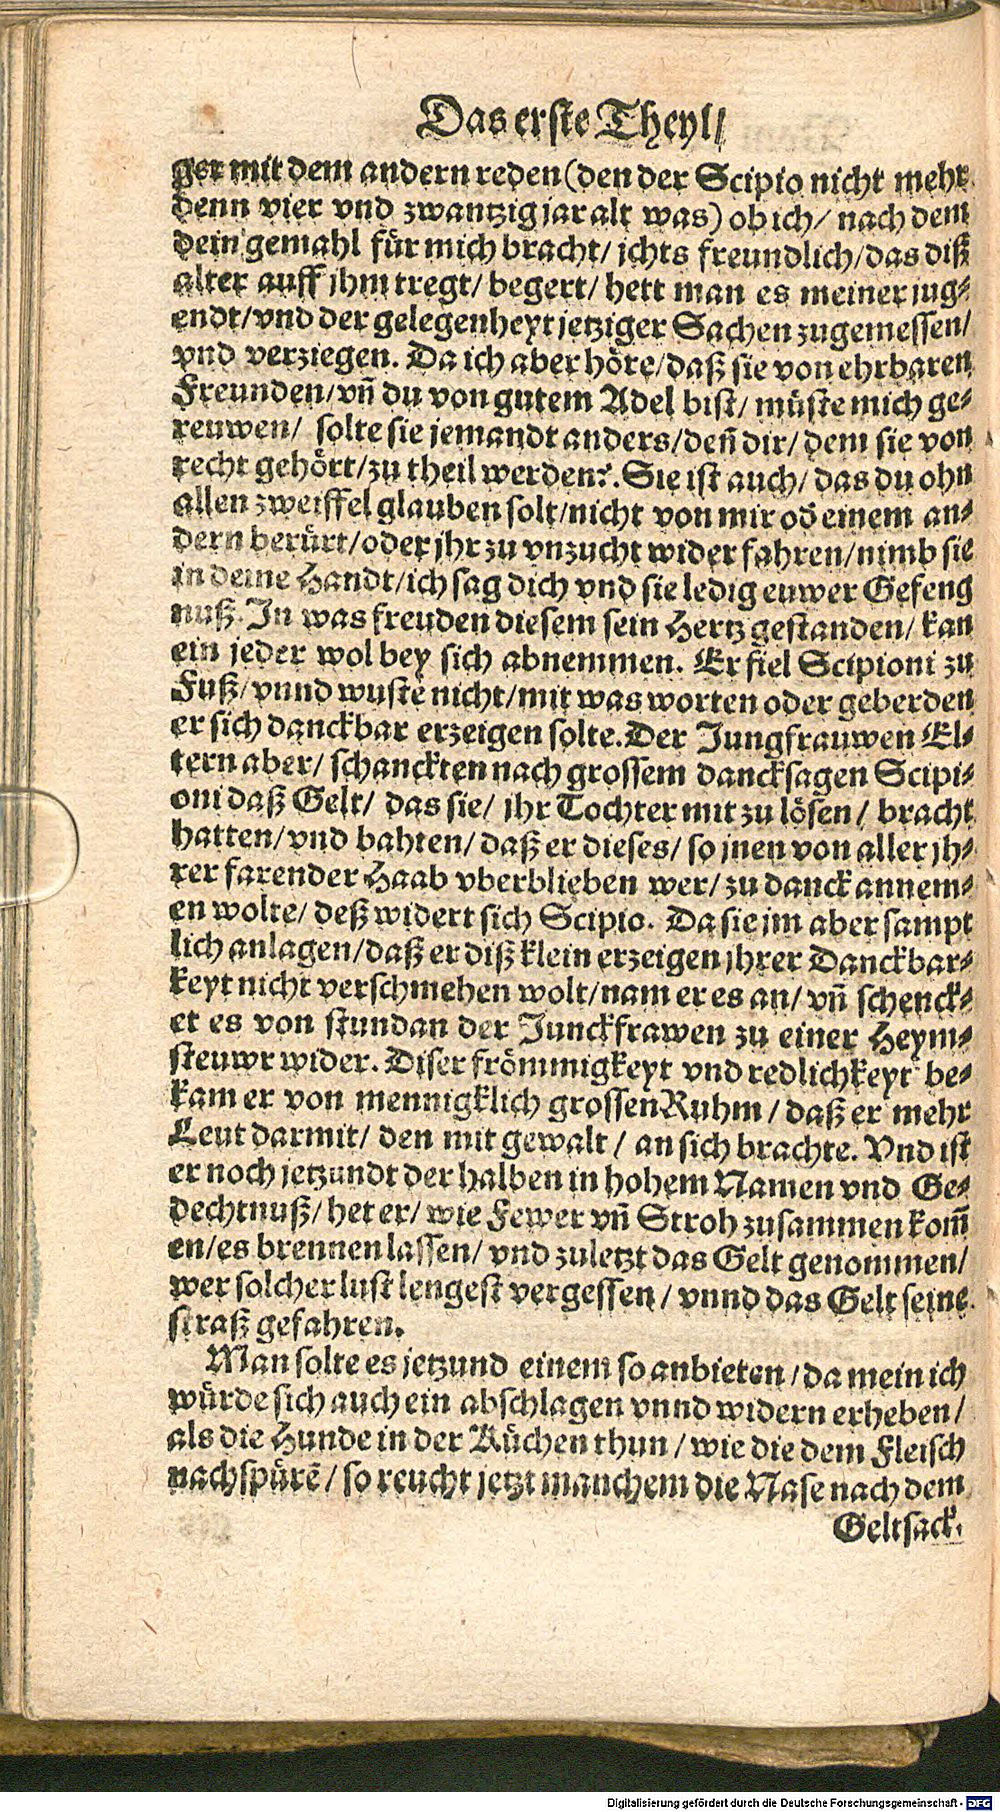 Das erste Theyl/
ger mit dem andern reden (den der Scipio nicht mehr
denn vier vnd zwantzig jar alt was) ob ich/ nach dem
dein gemahl für mich bracht/ jchts freundlich/ das diß
alter auff jhm tregt/ begert/ hett man es meiner jug⸗
endt/ vnd der gelegenheyt jetziger Sachen zugemessen/
vnd verziegen. Da ich aber höre/ daß sie von ehrbaren
Freunden/ vñ du von gutem Adel bist/ müste mich ge⸗
reuwen/ solte sie jemandt anders/ deñ dir/ dem sie von
recht gehört/ zu theil werden?. Sie ist auch/ das du ohn
allen zweiffel glauben solt/ nicht von mir oď einem an⸗
dern berürt/ oder jhr zu vnzucht wider fahren/ nimb sie
in deine Handt/ ich sag dich vnd sie ledig euwer Gefeng
nuß. In was freuden diesem sein Hertz gestanden/ kan
ein jeder wol bey sich abnemmen. Er fiel Scipioni zu
Fuß/ vnnd wuste nicht/ mit was worten oder geberden
er sich danckbar erzeigen solte. Der Jungfrauwen El⸗
tern aber/ schanckten nach grossem dancksagen Scipi⸗
oni daß Gelt/ das sie/ jhr Tochter mit zu lösen/ bracht
hatten/ vnd bahten/ daß er dieses/ so jnen von aller jh⸗
rer farender Haab vberblieben wer/ zu danck annem⸗
en wolte/ deß widert sich Scipio. Da sie jm aber sampt
lich anlagen/ daß er diß klein erzeigen jhrer Danckbar⸗
keyt nicht verschmehen wolt/ nam er es an/ vñ schenck⸗
et es von stundan der Junckfrawen zu einer Heym⸗
steuwr wider. Diser frömmigkeyt vnd redlichkeyt be⸗
kam er von mennigklich grossen Ruhm/ daß er mehr
Leut darmit/ den mit gewalt/ an sich brachte. Vnd ist
er noch jetzundt der halben in hohem Namen vnd Ge⸗
dechtnuß/ het er/ wie Fewer vñ Stroh zusammen kom̃
en/ es brennen lassen/ vnd zuletzt das Gelt genommen/
wer solcher lust lengest vergessen/ vnnd das Gelt seine
straß gefahren.
Man solte es jetzund einem so anbieten/ da mein ich
würde sich auch ein abschlagen vnnd widern erheben/
als die Hunde in der Küchen thun/ wie die dem Fleisch
nachspürē/ so reucht jetzt manchem die Nase nach dem
Geltsack.
Digitalisierung gefördert durch die Deutsche Forschungsgemeinschaft - DFG